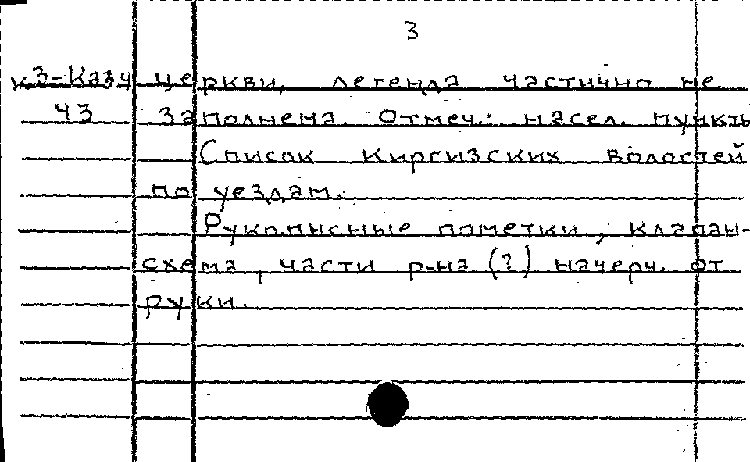 3
к3-Каз4 церкви, легенда частично не
43 заполнена. Отмеч.: насел. пункты
Список киргизских волостей
по уездам.
Рукописные пометки, клапан-
схема, части р-на (?) начерч. от
руки.